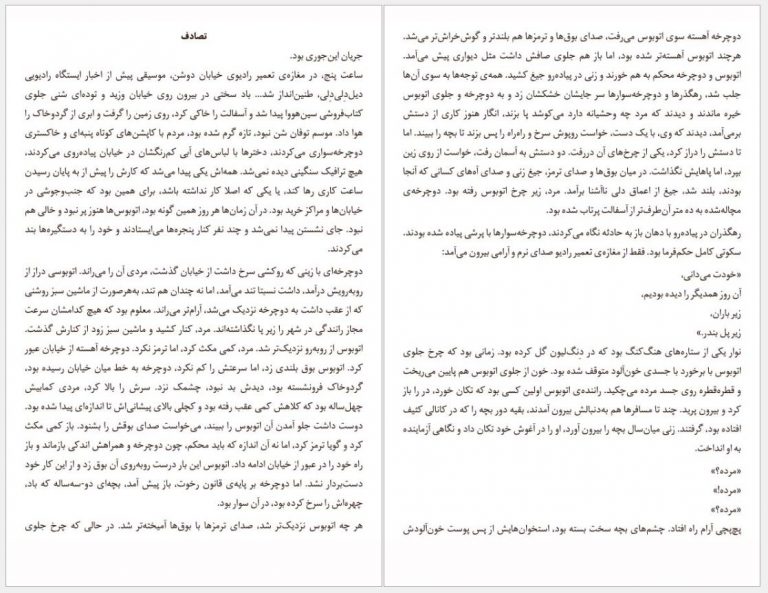 تصادف
جریان این‌جوری بود.
ساعت پنج، در مغازه‌ی تعمیر رادیوی خیابان دوشن، موسیقی پیش از اخبار ایستگاه رادیویی
دیل‌دِلی‌دِلی، طنین‌انداز شد... باد سختی در بیرون روی خیابان وزید و توده‌ای شنی جلوی
کتاب‌فروشی سین‌هووا پیدا شد و آسفالت را خاکی کرد، روی زمین را گرفت و ابری از گردوخاک را
هوا داد. موسم توفان شن نبود، تازه گرم شده بود، مردم با کاپشن‌های کوتاه پنبه‌ای و خاکستری
دوچرخه‌سواری می‌کردند، دخترها با لباس‌های آبی کم‌رنگشان در خیابان پیاده‌روی می‌کردند،
هیچ ترافیک سنگینی دیده نمی‌شد. همه‌اش یکی پیدا می‌شد که کارش را پیش از به پایان رسیدن
ساعت کاری رها کند، یا یکی که اصلا کار نداشته باشد، برای همین بود که جنب‌وجوشی در
خیابان‌ها و مراکز خرید بود. در آن زمان‌ها هر روز همین گونه بود، اتوبوس‌ها هنوز پر نبود و خالی هم
نبود. جای نشستن پیدا نمی‌شد و چند نفر کنار پنجره‌ها می‌ایستادند و خود را به دستگیره‌ها بند
می‌کردند.
دوچرخه‌ای با زینی که روکشی سرخ داشت از خیابان گذشت، مردی آن را می‌راند. اتوبوسی دراز از
روبه‌رویش درآمد، داشت نسبتا تند می‌آمد، اما نه چندان هم تند، به‌هرصورت از ماشین سبز روشنی
که از عقب داشت به دوچرخه نزدیک می‌شد، آرام‌تر می‌راند. معلوم بود که هیچ کدامشان سرعت
مجاز رانندگی در شهر را زیر پا نگذاشته‌اند. مرد، کنار کشید و ماشین سبز زود از کنارش گذشت.
اتوبوس از روبه‌رو نزدیک‌تر شد. مرد، کمی مکث کرد، اما ترمز نکرد. دوچرخه آهسته از خیابان عبور
کرد. اتوبوس بوق بلندی زد، اما سرعتش را کم نکرد، دوچرخه به خط میان خیابان رسیده بود،
گردوخاک فرونشسته بود، دیدش بد نبود، چشمک نزد. سرش را بالا کرد، مردی کمابیش
چهل‌ساله بود که کلاهش کمی عقب رفته بود و کچلی بالای پیشانی‌اش تا اندازه‌ای پیدا شده بود.
دوست داشت جلو آمدن آن اتوبوس را ببیند، می‌خواست صدای بوقش را بشنود. باز کمی مکث
کرد و گویا ترمز کرد، اما نه آن اندازه که باید محکم، چون دوچرخه و همراهش اندکی بازماند و باز
راه خود را در عبور از خیابان ادامه داد. اتوبوس این بار درست روبه‌روی آن بوق زد و از این کار خود
دست‌بردار نشد. اما دوچرخه بر پایه‌ی قانون رخوت، باز پیش آمد، بچه‌ای دو-سه‌ساله که باد،
چهره‌اش را سرخ کرده بود، در آن سوار بود.
هر چه اتوبوس نزدیک‌تر شد، صدای ترمزها با بوق‌ها آمیخته‌تر شد. در حالی که چرخ جلوی
دوچرخه آهسته سوی اتوبوس می‌رفت، صدای بوق‌ها و ترمزها هم بلندتر و گوش‌خراش‌تر می‌شد.
هرچند اتوبوس آهسته‌تر شده بود، اما باز هم جلوی صافش داشت مثل دیواری پیش می‌آمد.
اتوبوس و دوچرخه محکم به هم خورند و زنی در پیاده‌رو جیغ کشید. همه‌ی توجه‌ها به سوی آن‌ها
جلب شد، رهگذرها و دوچرخه‌سوارها سر جایشان خشکشان زد و به دوچرخه و جلوی اتوبوس
خیره ماندند و دیدند که مرد چه وحشیانه دارد می‌کوشد پا بزند، انگار هنوز کاری از دستش
برمی‌آمد، دیدند که وی، با یک دست، خواست روپوش سرخ و راه‌راه را پس بزند تا بچه را ببیند. اما
تا دستش را دراز کرد، یکی از چرخ‌های آن دررفت. دو دستش به آسمان رفت، خواست از روی زین
بپرد، اما پاهایش نگذاشت. در میان بوق‌ها و صدای ترمز، جیغ زنی و صدای آه‌های کسانی که آنجا
بودند، بلند شد، جیغ از اعماق دلی ناآشنا برآمد. مرد، زیر چرخ اتوبوس رفته بود. دوچرخه‌ی
مچاله‌شده به ده متر آن‌طرف‌تر از آسفالت پرتاب شده بود.
رهگذران در پیاده‌رو با دهان باز به حادثه نگاه می‌کردند، دوچرخه‌سوارها با پرشی پیاده شده بودند.
سکوتی کامل حکم‌فرما بود. فقط از مغازه‌ی تعمیر رادیو صدای نرم و آرامی بیرون می‌آمد:
«خودت می‌دانی،
آن روز همدیگر را دیده بودیم،
زیر باران،
زیر پل بندر.»
نوار یکی از ستاره‌های هنگ‌کنگ بود که در دِنگ‌لیون گل کرده بود. زمانی بود که چرخ جلوی
اتوبوس با برخورد با جسدی خون‌آلود متوقف شده بود. خون از جلوی اتوبوس هم پایین می‌ریخت
و قطره‌قطره روی جسد مرده می‌چکید. راننده‌ی اتوبوس اولین کسی بود که تکان خورد، در را باز
کرد و بیرون پرید. چند تا مسافرها هم به‌دنبالش بیرون آمدند، بقیه دور بچه را که در کانالی کثیف
افتاده بود، گرفتند. زنی میان‌سال بچه را بیرون آورد، او را در آغوش خود تکان داد و نگاهی آزماینده
به او انداخت.
«مرده؟»
«مرده!»
«مرده؟»
پچ‌پچی آرام راه افتاد. چشم‌های بچه سخت بسته بود، استخوان‌هایش از پس پوست خون‌آلودش